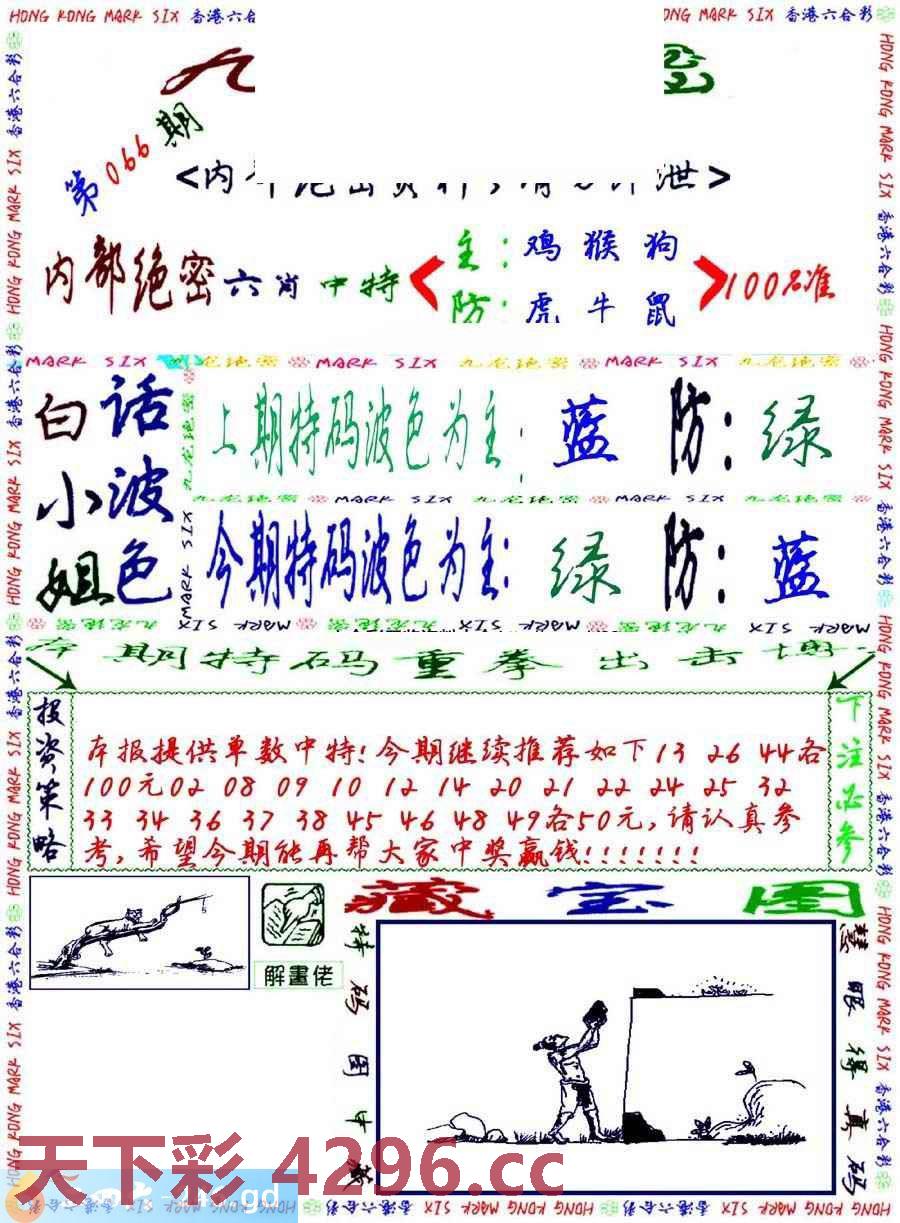 HONG KONG MARK SIX 香港六合彩
第066期
内部绝密六肖中特
主：鸡猴狗
防：虎牛鼠
100名准
MARK SIX 九龙绝密 MARK SIX 九龙绝密 MARK SIX 九龙绝密
白话
小波
姐色
上期特码波色为主：蓝 防：绿
今期特码波色为主：绿 防：蓝
期特码重拳出击
投资策略
本报提供单数中特！今期继续推荐如下13 26 44各
100元02 08 09 10 12 14 20 21 22 24 25 32
33 34 36 37 38 45 46 48 49各50元，请认真参
考，希望今期能再帮大家中奖赢钱！！！！！！！
下注必参
解畫佬
藏宝图
特码图中藏
慧眼得真码
天下彩4296.cc